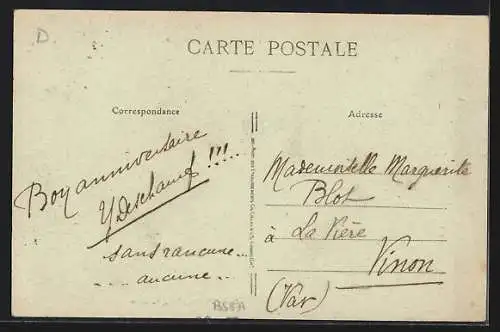 D.
CARTE POSTALE
Correspondance
Adresse
Bon anniversaire
YDeschamps !!!...
sans rancune...
... aucune...
Mademoiselle Marguerite
Blot
à La Père
Vinon
(Var)